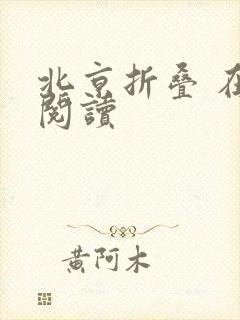 北京折叠 在
閱讀
黄阿木